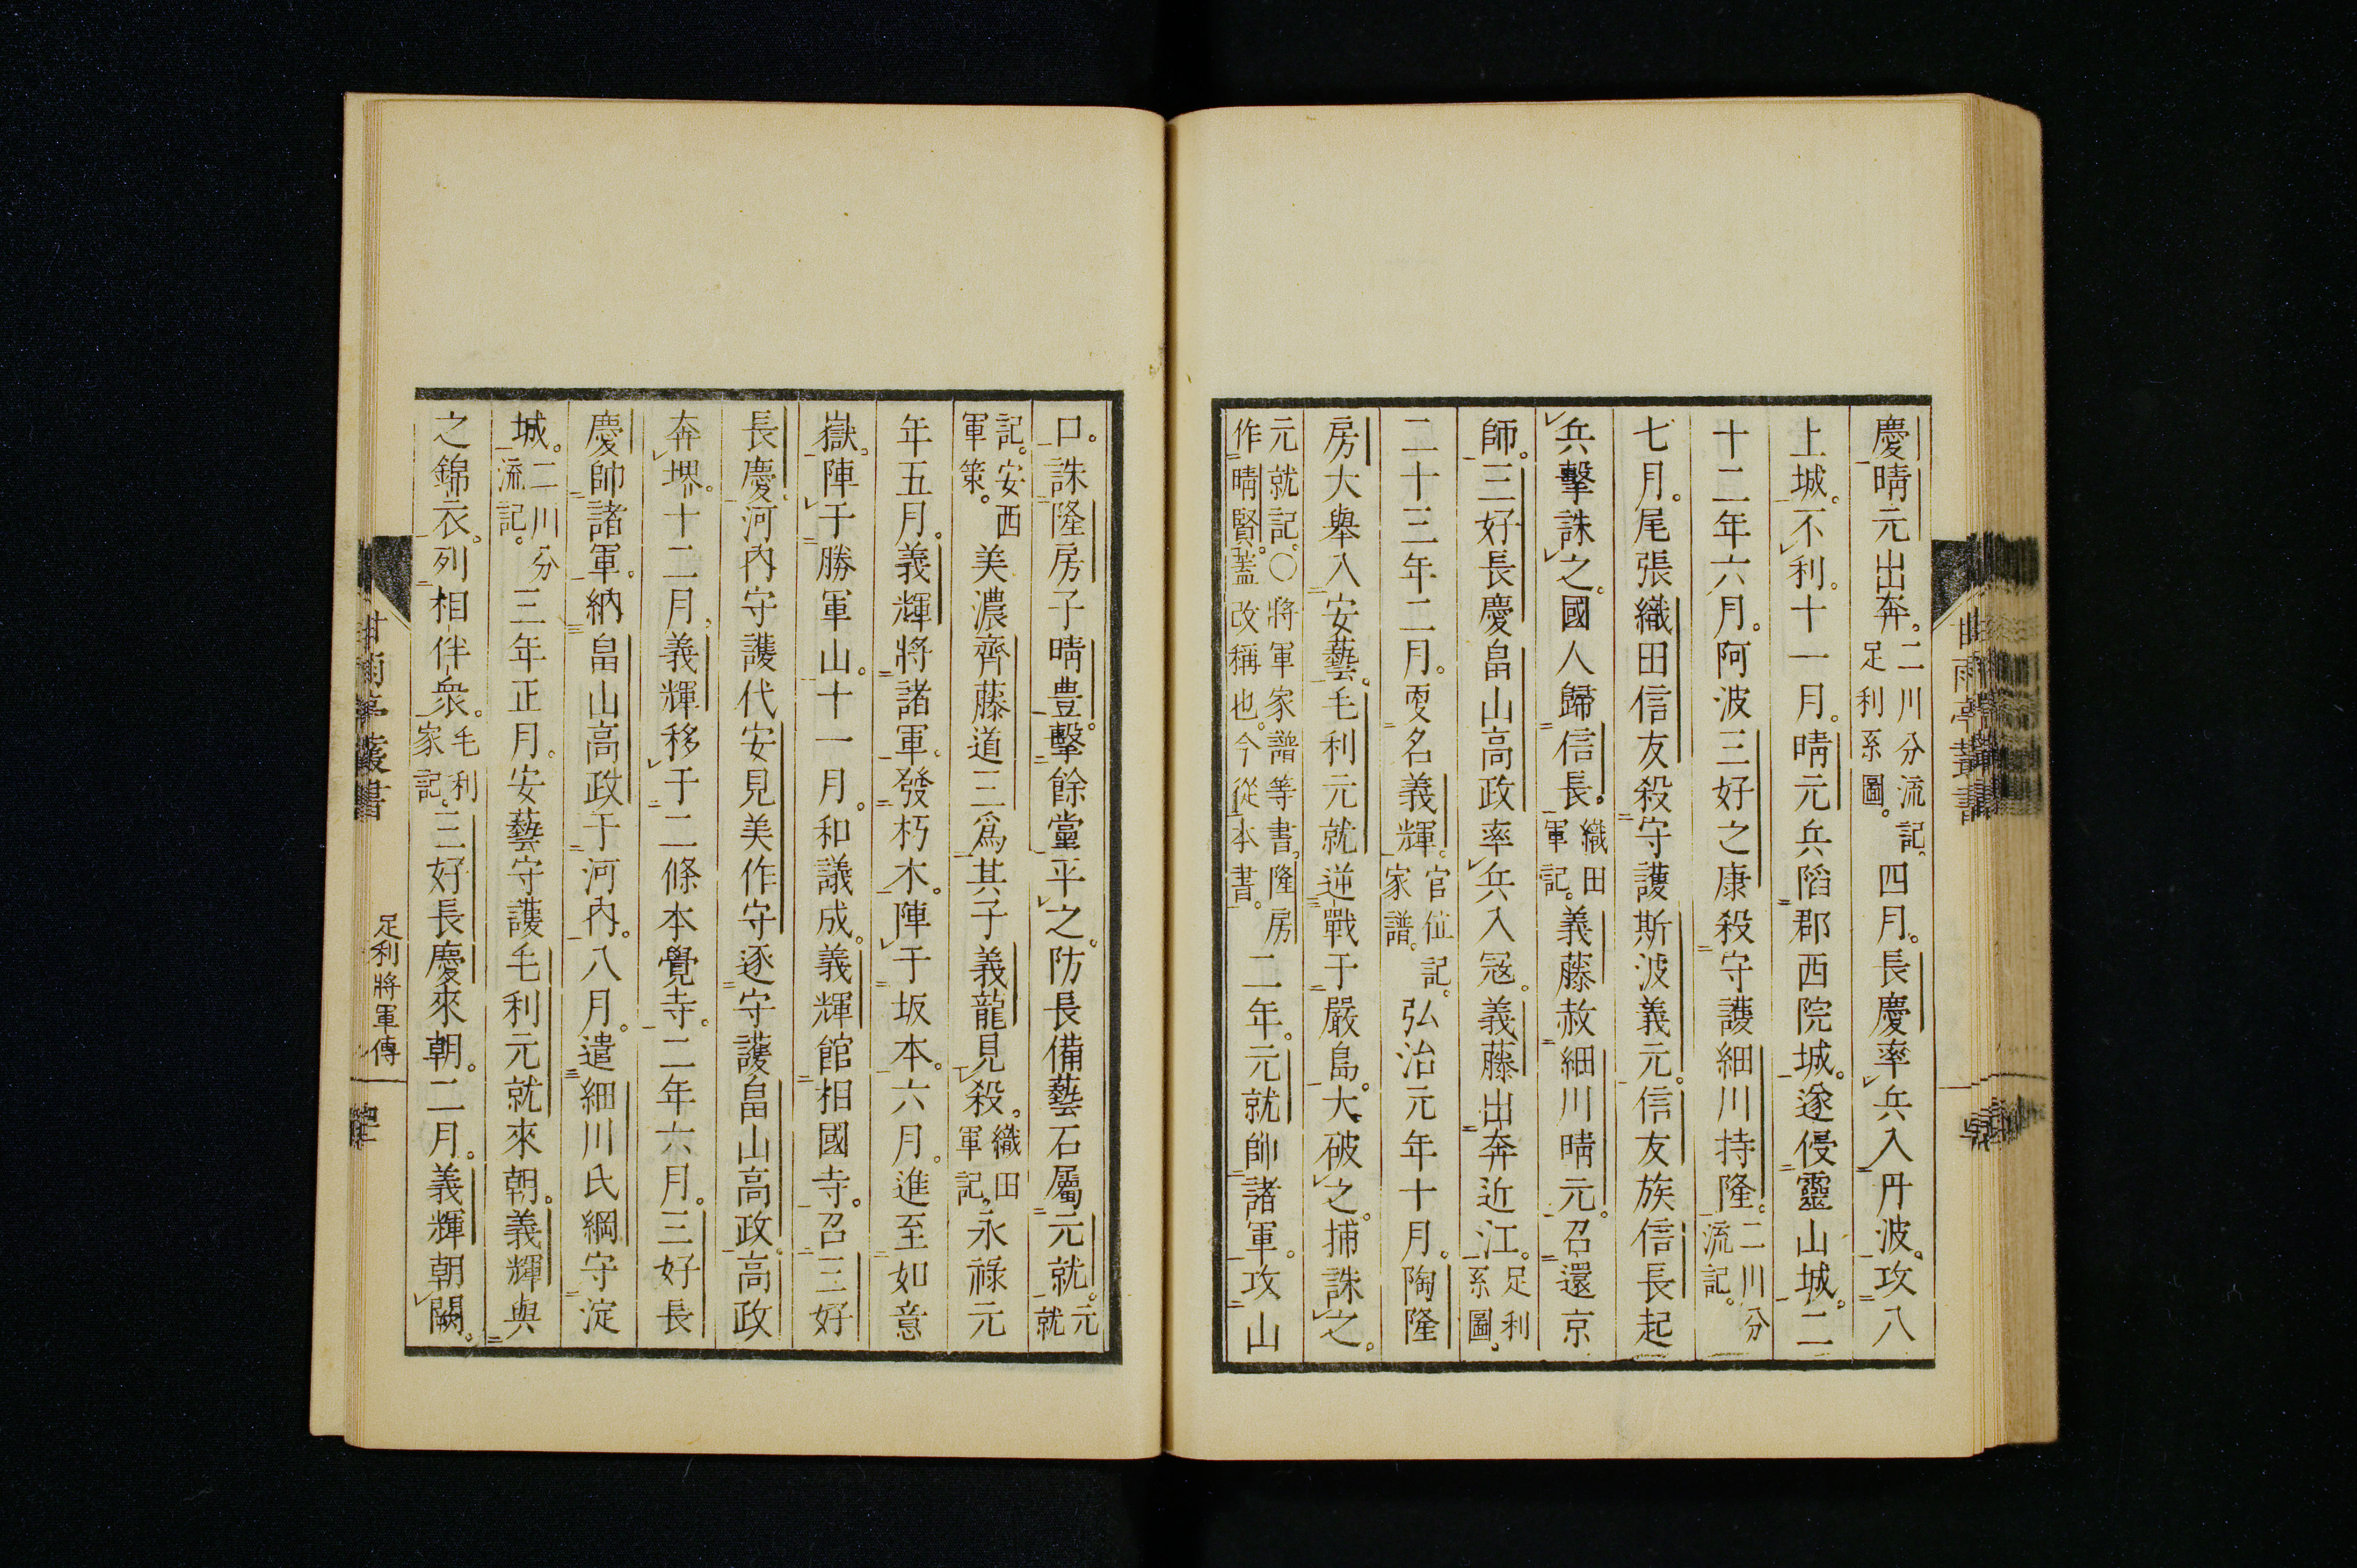 慶晴元出奔。二川分流記。足利系圖。四月。長慶率兵入丹波。攻八
上城。不利。十一月。晴元兵陷郡西院城。遂侵靈山城。二
十二年六月。阿波三好之康殺守護細川持隆。二川分流記。
七月。尾張織田信友殺守護斯波義元。信友族信長起
兵擊誅之。國人歸信長。織田軍記。義藤赦細川晴元。召還京
師。三好長慶畠山高政率兵入寇。義藤出奔近江。足利系圖。
二十三年二月。更名義輝。官位記。家譜。弘治元年十月。陶隆
房大舉入安藝。毛利元就逆戰于嚴島。大破之。捕誅之。
元就記。○將軍家譜等書。隆房作晴賢。蓋改稱也。今從本書。二年。元就帥諸軍。攻山
口。誅隆房子晴豊。擊餘黨平之。防長備藝石屬元就。元就
記。安西軍策。美濃齊藤道三爲其子義龍見殺。織田軍記。永祿元
年五月。義輝將諸軍。發朽木。陣于坂本。六月。進至如意
嶽。陣于勝軍山。十一月。和議成。義輝館相國寺。召三好
長慶。河內守護代安見美作守逐守護畠山高政。高政
奔堺。十二月。義輝移于二條本覺寺。二年六月。三好長
慶帥諸軍。納畠山高政于河內。八月。遣細川氏綱守淀
城。二川分流記。三年正月。安藝守護毛利元就來朝。義輝與
之錦衣。列相伴衆。毛利家記。三好長慶來朝。二月。義輝朝闕。
甘雨亭叢書
足利將軍傳